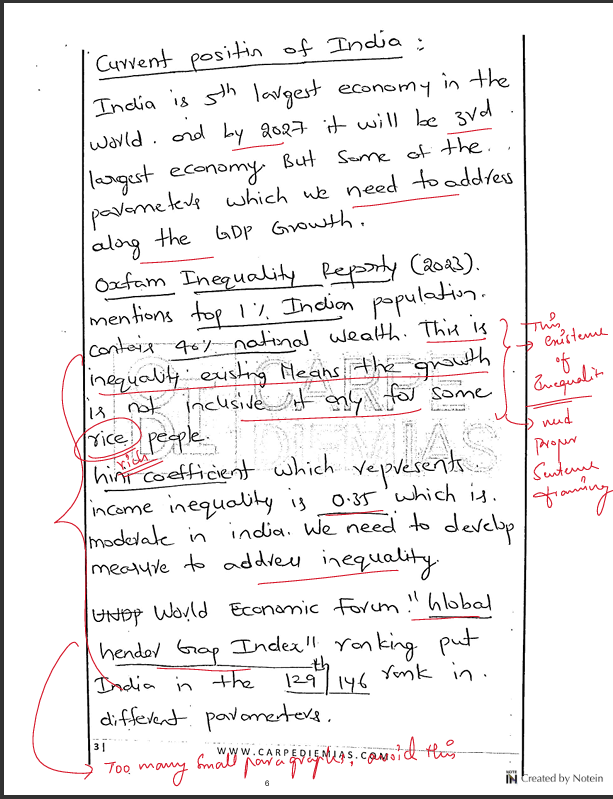 Current positin of India :
India is 5th largest economy in the
world. and by 2027 it will be 3rd
largest economy. But Some of the..
parameters which we need to address
along the GDP Growth.
Oxfam Inequality Reporty (2023).
mentions top 1% Indian population.
contais 40% natinal wealth. This is
inequality existing Means the growth
is not inclusive it only for some
rice people.
rich
Gini coefficient which represents
income inequality is 0.35 which is.
moderate in india. We need to develop
measure to address inequality.
UNDP World Economic Forum "Global
Gender Gap Index" ranking put
India in the 129th/146 rank in.
different paramerters.
This
existence
of
Inequalit
need
proper
Sentence
framing
CARPE
DIEMIAS
3|
WWW.CARPEDIEMIAS.COM
Too many small paragraphs, avoid this
6
NOTE IN Created by Notein